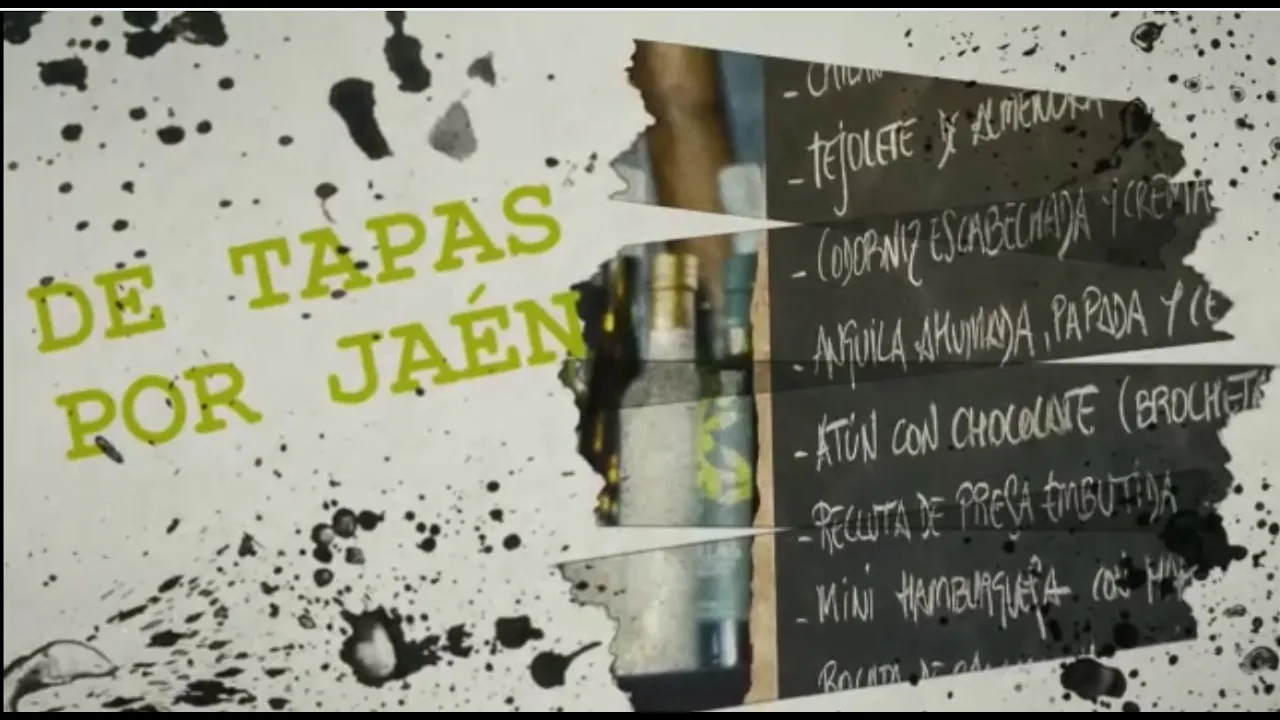 DE TAPAS
POR JAÉN
- TEJOLETE Y ALMENDRA
- CODORNIZ ESCABECHADA Y CREMA
- ANGUILA AHUMADA, PAPADA Y
- ATÚN CON CHOCOLATE (BROCHETA
- RECLUTA DE PRESA EMBUTIDA
- MINI HAMBURGUESA CON